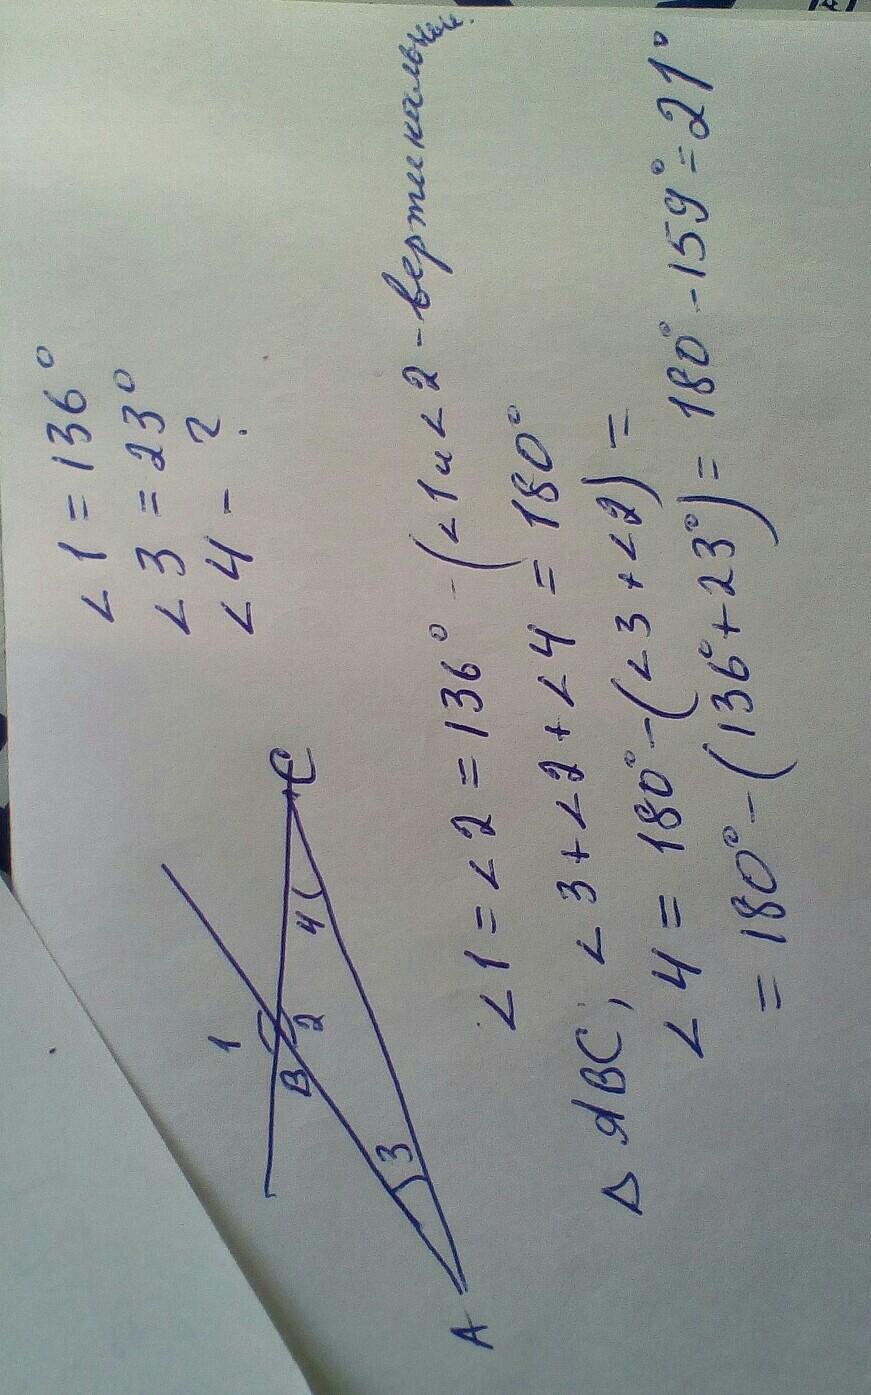 ∠1 = 136°
∠3 = 23°
∠4 - ?
1
B
2
4
C
3
A
∠1 = ∠2 = 136° - (∠1 и ∠2 - вертикальные
Δ ABC, ∠3 + ∠2 + ∠4 = 180°
∠4 = 180° - (∠3 + ∠2) =
= 180° - (136° + 23°) = 180° - 159° = 21°